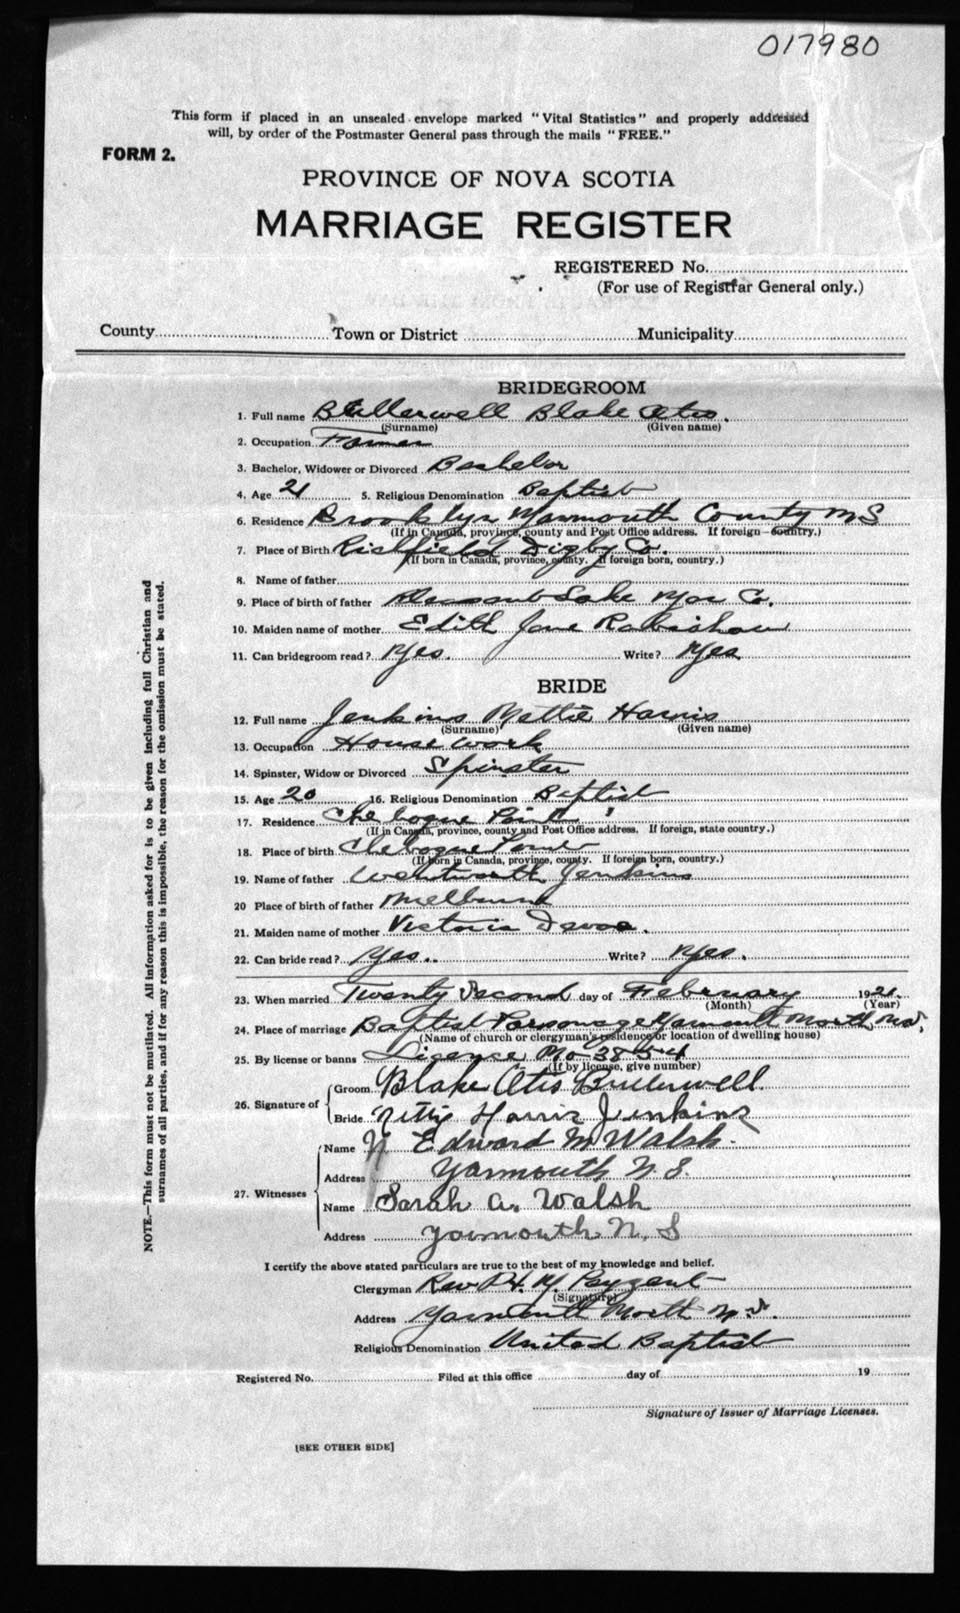 017980
This form if placed in an unsealed envelope marked "Vital Statistics" and properly addressed
will, by order of the Postmaster General pass through the mails "FREE."
FORM 2.
PROVINCE OF NOVA SCOTIA
MARRIAGE REGISTER
REGISTERED No.
(For use of Registrar General only.)
County Town or District Municipality
BRIDEGROOM
1. Full name Blake Otis.
(Surname) (Given name)
2. Occupation Farmer
3. Bachelor, Widower or Divorced Bachelor
4. Age 21 5. Religious Denomination Baptist
6. Residence Brooklyn Yarmouth County NS
(If in Canada, province, county and Post Office address. If foreign country.)
7. Place of Birth Richfield Digby Co.
(If born in Canada, province, county. If foreign born, country.)
8. Name of father
9. Place of birth of father Pleasant Lake Yar Co.
10. Maiden name of mother Edith Jane Robishaw
11. Can bridegroom read? Yes. Write? Yes
BRIDE
12. Full name Jenkins Nettie Harris
(Surname) (Given name)
13. Occupation House work
14. Spinster, Widow or Divorced Spinster
15. Age 20 16. Religious Denomination Baptist
17. Residence Chebogue Point
(If in Canada, province, county and Post Office address. If foreign, state country.)
18. Place of birth Chebogue Point
(If born in Canada, province, county. If foreign born, country.)
19. Name of father Wentworth Jenkins
20 Place of birth of father Melbourne
21. Maiden name of mother Victoria Devoe.
22. Can bride read? Yes.. Write? Yes.
23. When married Twenty Second day of February 1921.
(Month) (Year)
24. Place of marriage Baptist Parsonage Yarmouth North, N.S.
(Name of church or clergyman's residence or location of dwelling house)
25. By license or banns Licence No 3854
(If by license, give number)
26. Signature of
Groom Blake Otis
Bride Netty Harris Jenkins
27. Witnesses
Name Edward M Walsh.
Address Yarmouth N.S.
Name Sarah A. Walsh
Address Yarmouth N.S
I certify the above stated particulars are true to the best of my knowledge and belief.
Clergyman Rev
(Signature)
Address Yarmouth North N.S.
Religious Denomination United Baptist
Registered No. Filed at this office day of 19
Signature of Issuer of Marriage Licenses.
[SEE OTHER SIDE]
NOTE.—This form must not be mutilated. All information asked for is to be given including full Christian and
surnames of all parties, and if for any reason this is impossible, the reason for the omission must be stated.